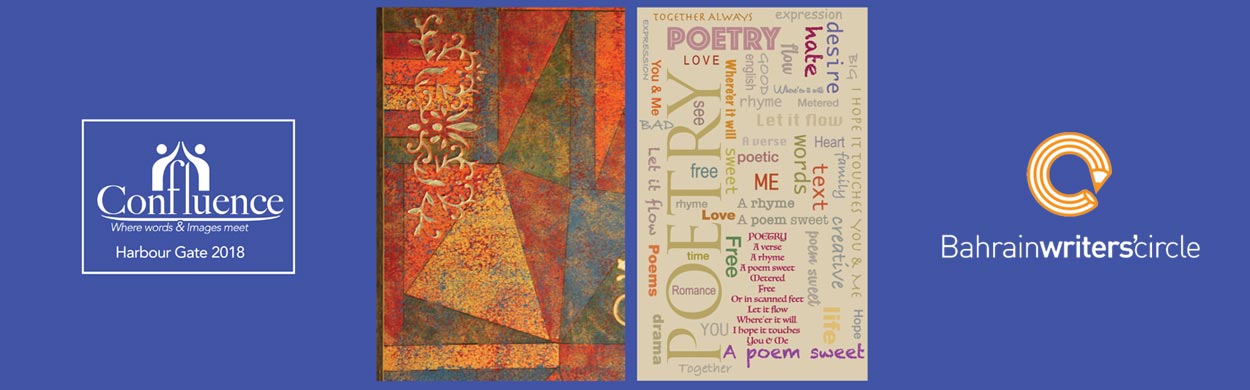 Confluence
Where words & Images meet
Harbour Gate 2018
TOGETHER ALWAYS
expression
EXPRESSION
POETRY
desire
hate
flow
LOVE
english
GOOD
BIG I HOPE IT TOUCHES YOU & ME
You & Me
Where'er it will
Where'er it will
POETRY
see
rhyme
Metered
BAD
Let it flow
A verse
Heart
words
family
Let it flow
sweet
poetic
free
ME
text
rhyme
A rhyme
Love
A poem sweet
creative
poem sweet
Free
POETRY
A verse
A rhyme
A poem sweet
Metered
Free
Or in scanned feet
Let it flow
Where'er it will
I hope it touches
You & Me
Poems
time
Romance
life
Hope
drama
YOU
A poem sweet
Together
Bahrainwriters'circle